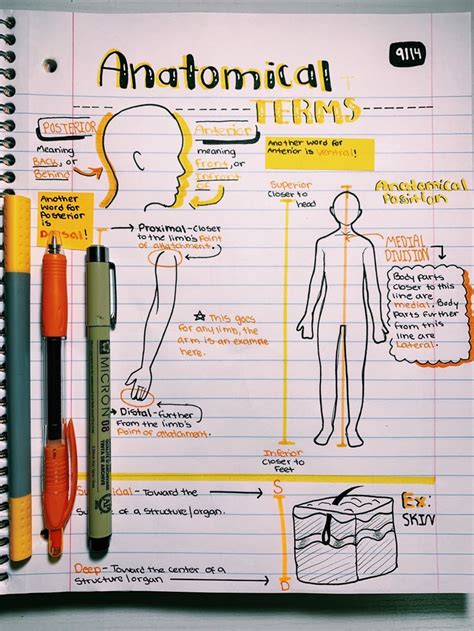 9/14
Anatomical
TERMS
POSTERIOR
Meaning
BACK, or
Behind
Anterior
meaning
Front, or
Infront
of
Another word for
Anterior is Ventral!
Another
Word for
Posterior
is
Dorsal!
Proximal-closer
to the limb's Point
of attatchment.
☆ This goes
for any limb, the
arm is an example
here.
Distal-further
From the limb's
Point of attatchment.
Superior
Closer to
head
Inferior
Closer to
Feet
Anatomical
Position
MEDIAL
DIVISION
Body parts
closer to this
line are
medial. Body
parts further
from this
line are
Lateral.
MICRON 08
Toward the
of a structure/organ.
S
D
Deep - Toward the center of a
structure/organ
Ex:
SKIN